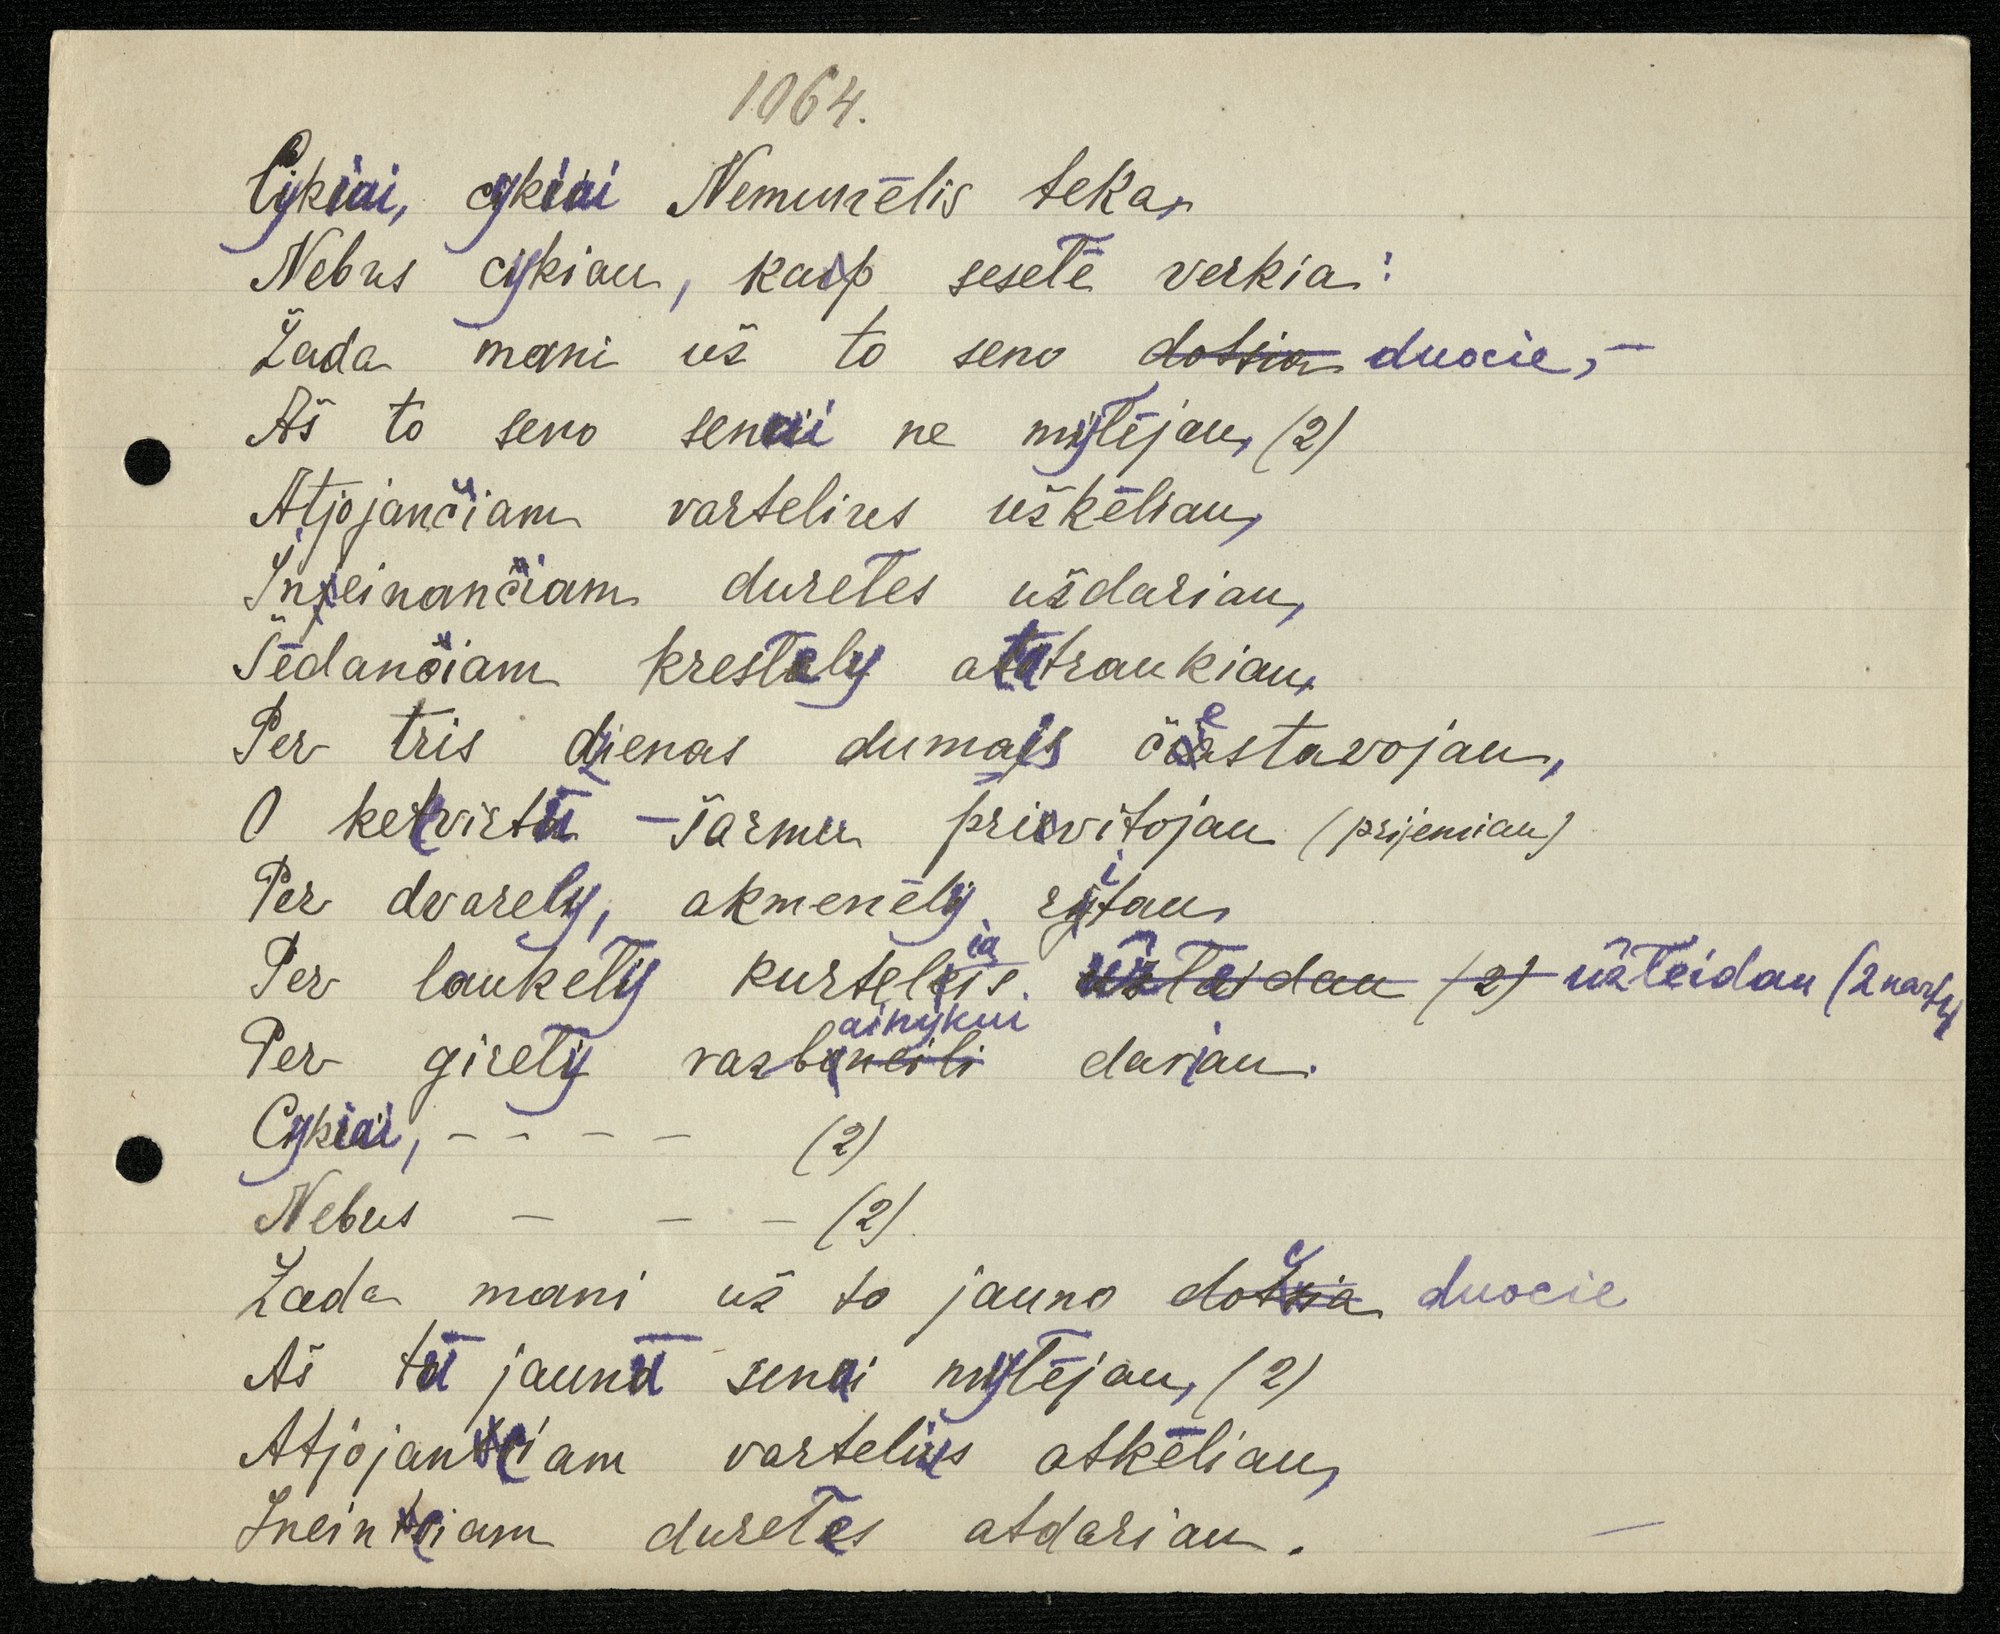 1064.
Cykiai, cykiai Nemunēlis teka,
Nebus cykiau, kaip sesetē verkia:
Žada mani už to seno dotsia duocie, –
Aš to seno senai ne mylējau, (2)
Atjojančiam vartelius užkēliau,
Injeinančiam duretes uždariau,
Sēdančiam krestely attraukiau,
Per tris dienas dumais čestavojau,
O ketvirtū – šarmu privitojau (prijemiau)
Per dvarely, akmenēly ritau,
Per laukety kurteliais užteidau (2) užteidau (2 karty
Per girety razbainykui dariau.
Cykiai, – – – – (2)
Nebus – – – (2)
Žada mani už to jauno docia duocie
Aš tū jaunū senai mylējau, (2)
Atjojanciam vartelius atkēliau,
Ineinciam duretes atdariau. –